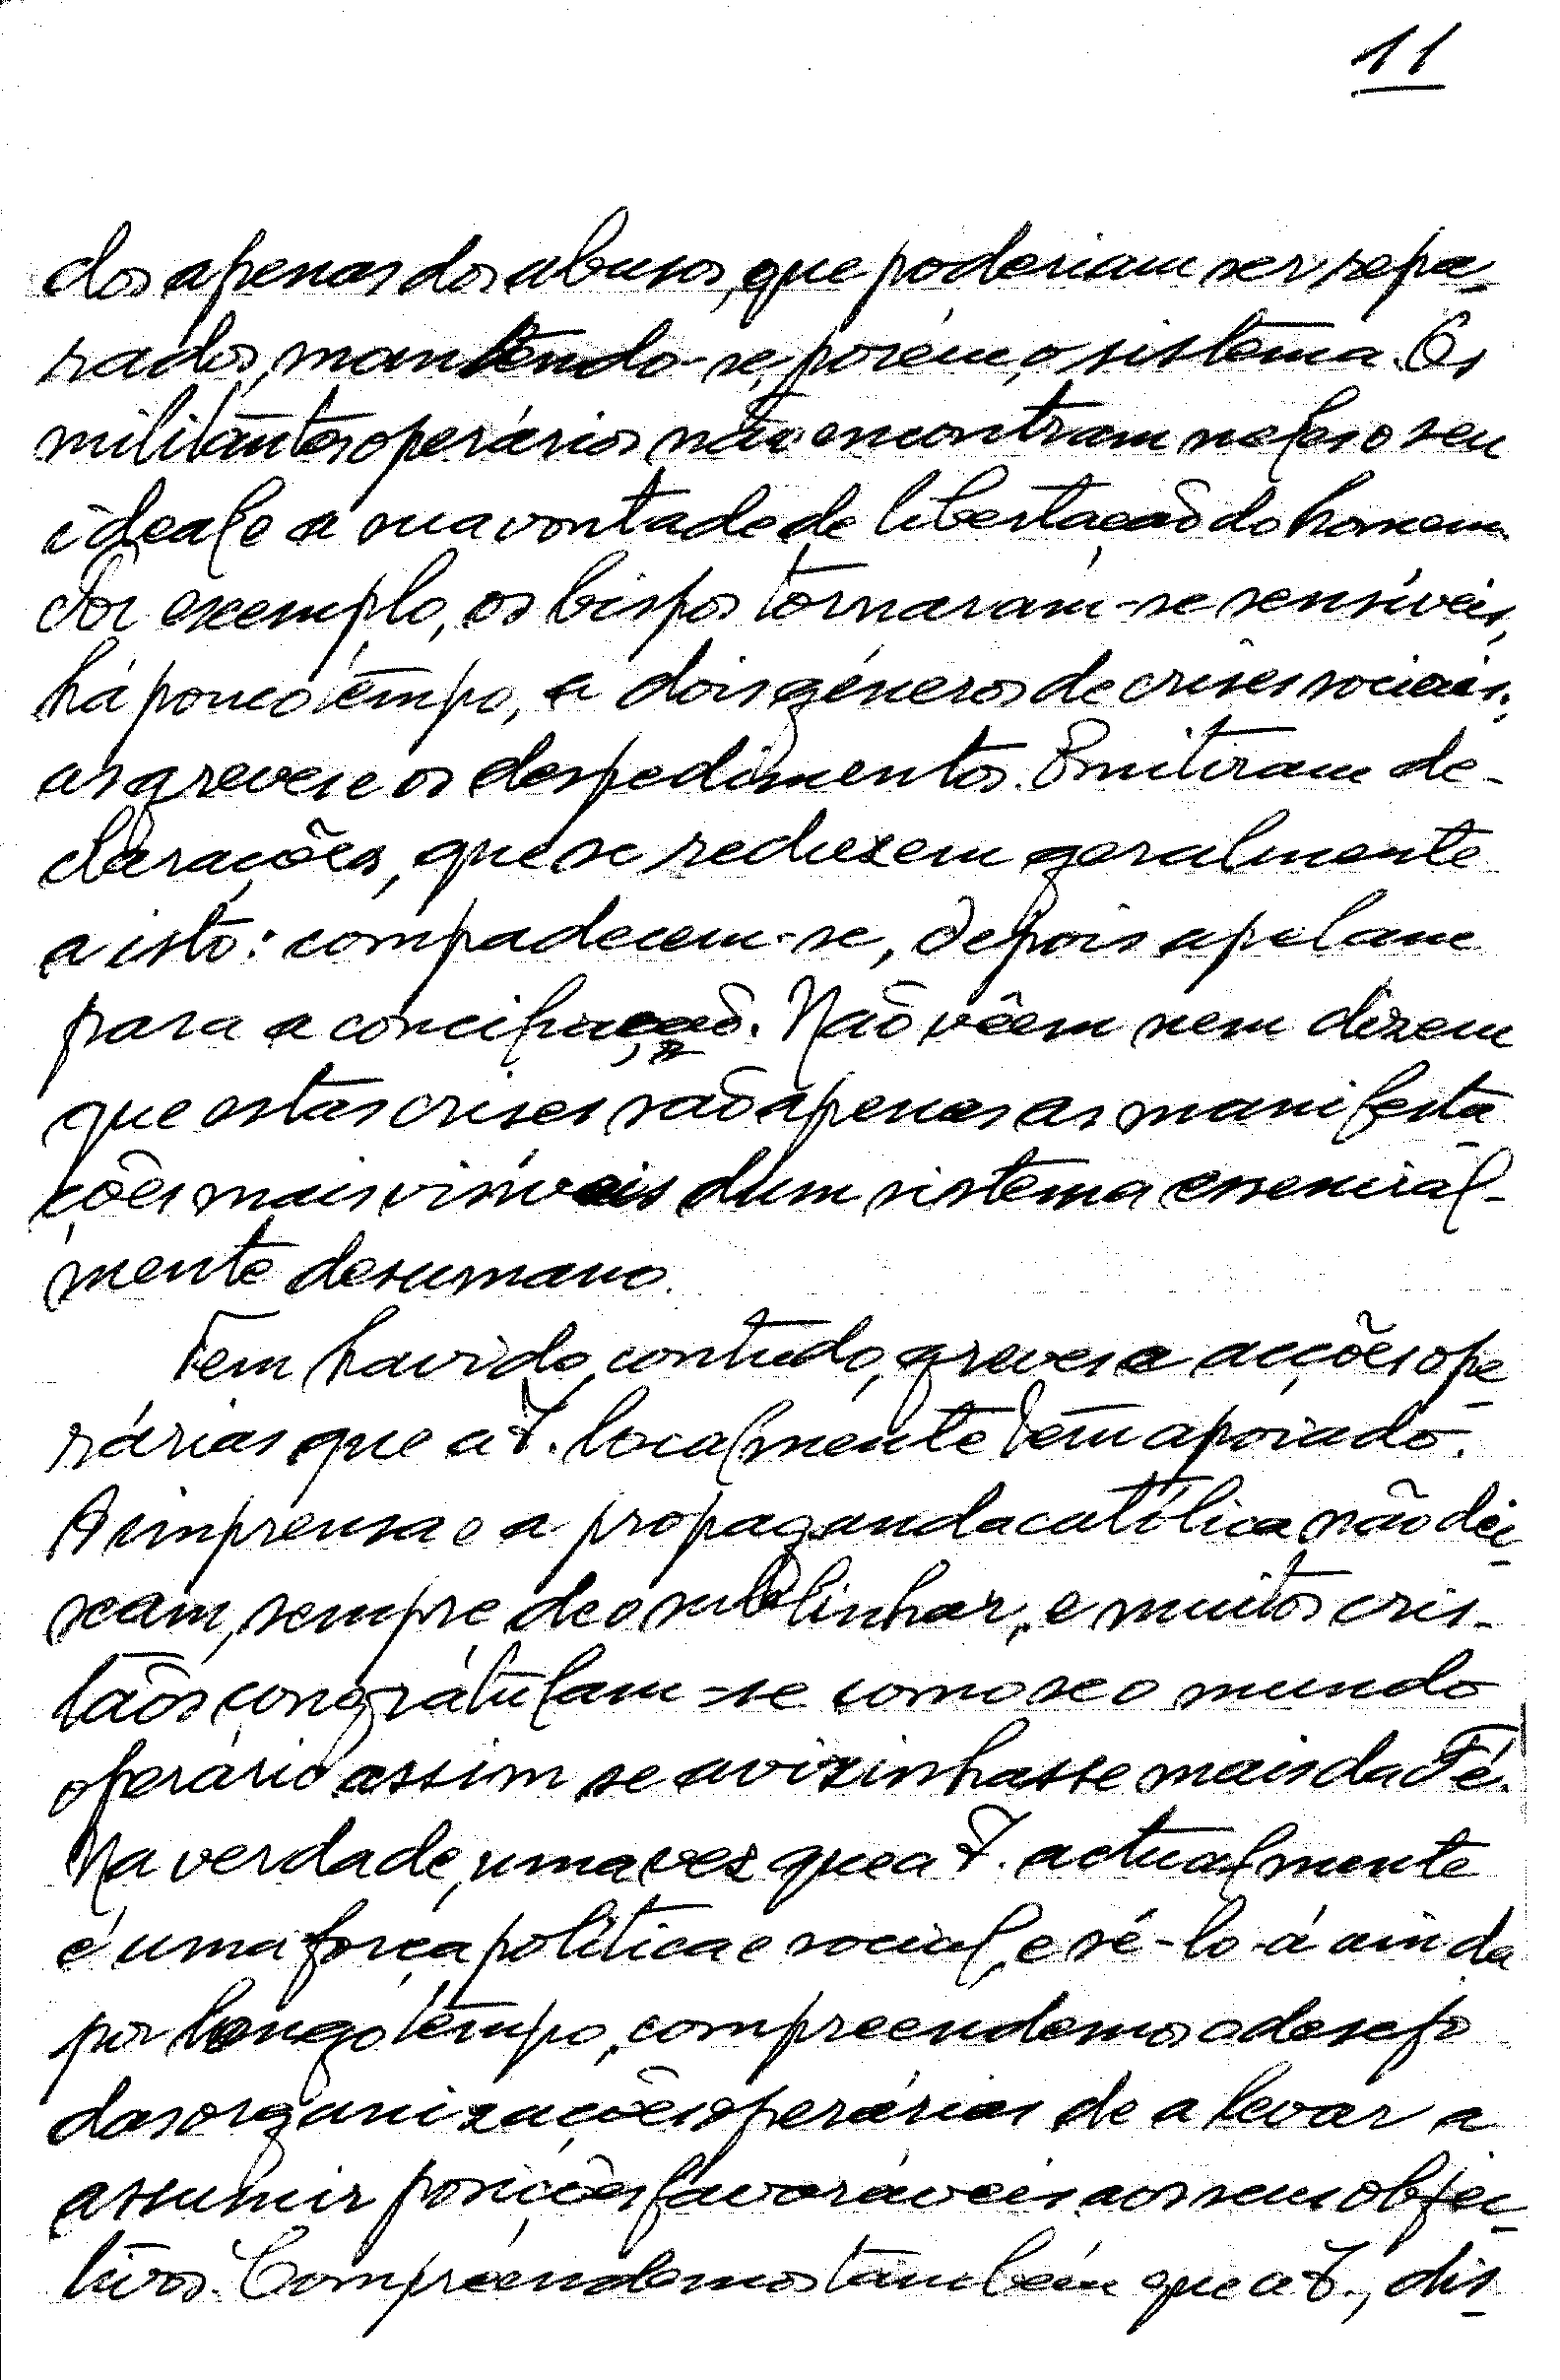 11
dos apenas dos abusos, que poderiam ser sepa-
rados, mantendo-se, porém, o sistema. Os
militantes operários não encontram neles o seu
ideal e a sua vontade de libertação do homem.
Por exemplo, os bispos tornaram-se sensíveis,
há pouco tempo, a dois géneros de crises sociais:
as greves e os despedimentos. Emitiram de-
clarações, que se reduzem geralmente
a isto: compadecem-se, depois apelam
para a conciliação. Não vêem nem dizem
que estas crises são apenas as manifesta-
ções mais visíveis dum sistema essencial-
mente desumano.
Tem havido, contudo, greves e acções ope-
rárias que a I. localmente tem apoiado.
A imprensa e a propaganda católica não dei-
xam, sempre de o sublinhar, e muitos cris-
tãos congratulam-se como se o mundo
operário assim se avizinhasse mais da Fé.
Na verdade, uma vez que a I. actualmente
é uma força política e social, e sê-lo-á ainda
por longo tempo, compreendemos o desejo
das organizações operárias de a levar a
assumir posições favoráveis aos seus objec-
tivos. Compreendemos também que a I., dis-